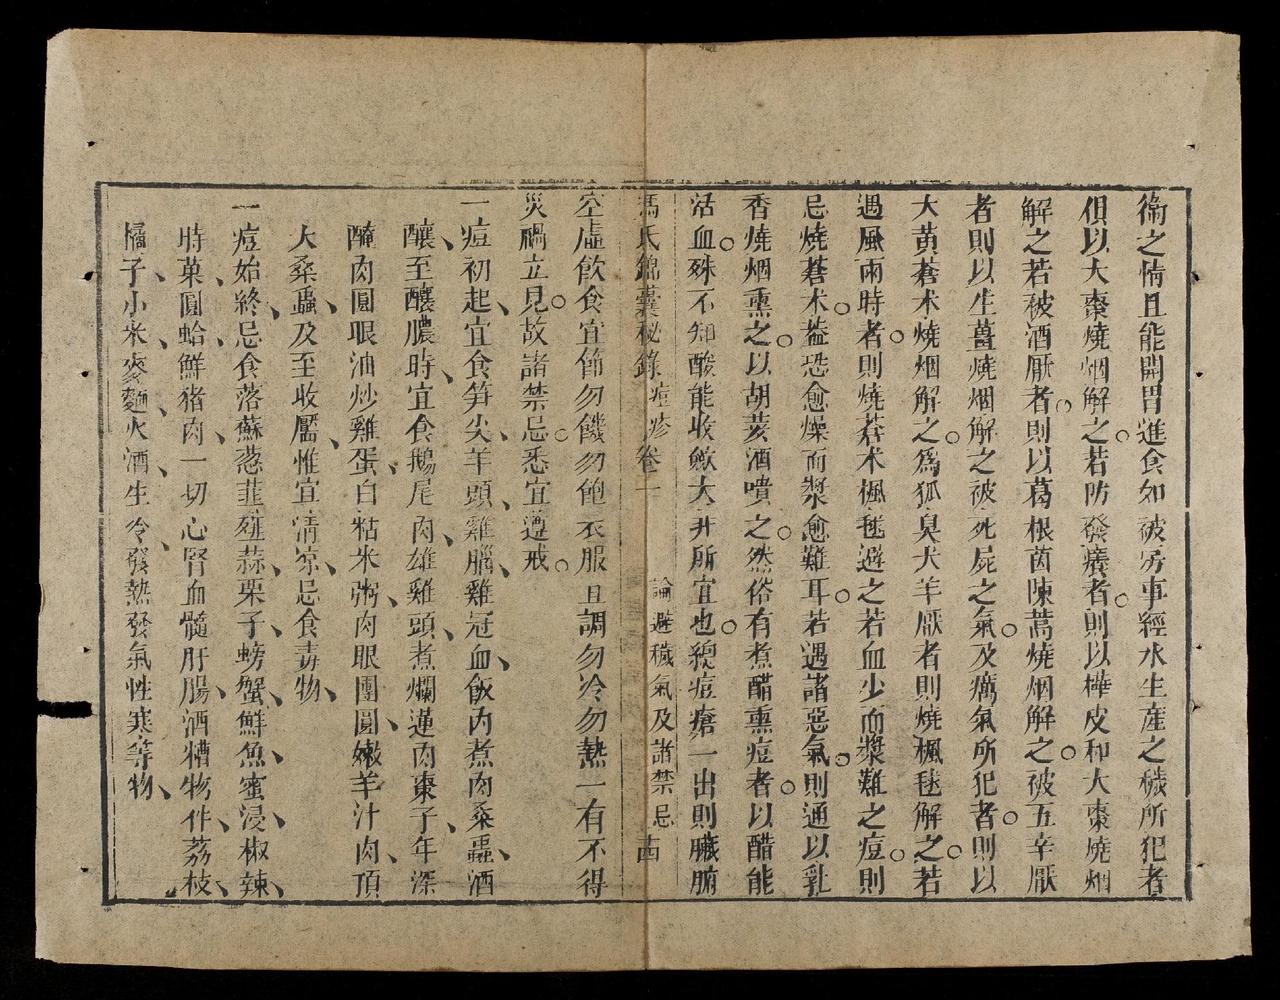 衞之情且能開胃進食如被房事經水生產之穢所犯者
俱以大棗燒烟解之若防發癢者則以樺皮和大棗燒烟
解之若被酒厭者則以葛根茵陳蒿燒烟解之被五辛厭
者則以生薑燒烟解之被死屍之氣及癘氣所犯者則以
大黃蒼朮燒烟解之為狐臭犬羊厭者則燒楓毬解之若
遇風雨時者則燒蒼朮楓毬避之若血少而漿難之痘則
忌燒蒼朮葢恐愈燥而漿愈難耳若遇諸惡氣則通以乳
香燒烟熏之以胡荽酒噴之然俗有煮醋熏痘者以醋能
活血殊不知酸能收斂大非所宜也總痘瘡一出則臟腑
馮氏錦囊秘錄 痘疹卷一 論避穢氣及諸禁忌 十四
空虛飲食宜節勿饑勿飽衣服且調勿冷勿熱一有不得
災禍立見故諸禁忌悉宜遵戒
一痘初起宜食笋尖羊頭雞腦雞冠血飯內煮肉桑蟲酒
釀至釀膿時宜食鵝尾肉雄雞頭煮爛蓮肉棗子年深
醃肉圓眼油炒雞蛋白粘米粥肉眼團圓嫩羊汁肉頂
大桑蟲及至收靨惟宜清凉忌食毒物
一痘始終忌食落蘇葱韮薤蒜栗子螃蟹鮮魚蜜浸椒辣
時菓圓蛤鮮豬肉一切心腎血髓肝腸酒糟物件荔枝
橘子小米麥麵火酒生冷發熱發氣性寒等物